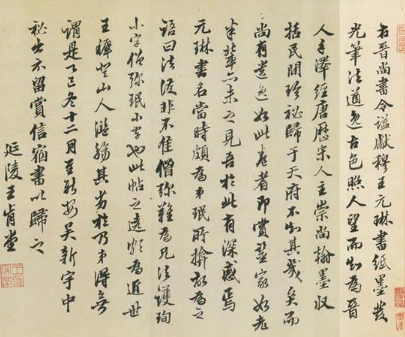 右晉尚書令謚獻穆王元琳書紙墨發
光筆法遒逸古色照人望而知為晉
人手澤經唐歷宋人主崇尚翰墨收
括民間珍祕歸于天府不知其幾矣而
尚有遺逸如此卷者即賞鑒家如老
米輩亦未之見吾於此有深感焉
元琳書名當時頗為弟珉所掩故為之
語曰法護非不佳僧彌難為兄法護珣
小字僧彌珉小字也此帖之頗為近世
王穉登山人游揚其劣於乃弟得無
謂是巳冬十二月至新安吳新宇中
祕出示留賞信宿書以歸之
延陵王肯堂